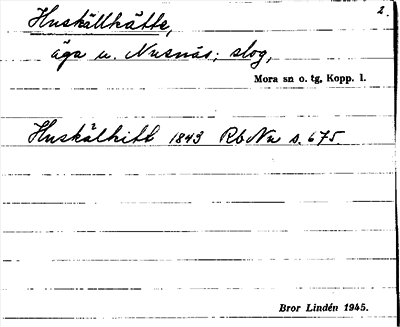 Huskällhätte, 2.
äga u. Nusnäs; slog,
Mora sn o. tg, Kopp. l.
Huskälhitt 1843 Rb Nu s. 675.
Bror Lindén 1945.